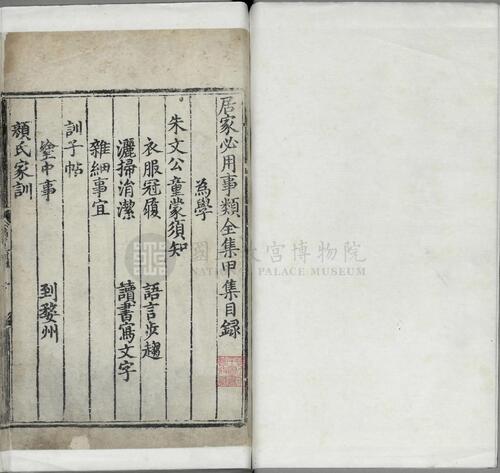 居家必用事類全集甲集目錄
為學
朱文公童蒙須知
衣服冠履　語言步趨
灑掃涓潔　讀書寫文字
雜細事宜
訓子帖
塗中事　到婺州
顏氏家訓
國立故宮博物院
NATIONAL PALACE MUSEUM